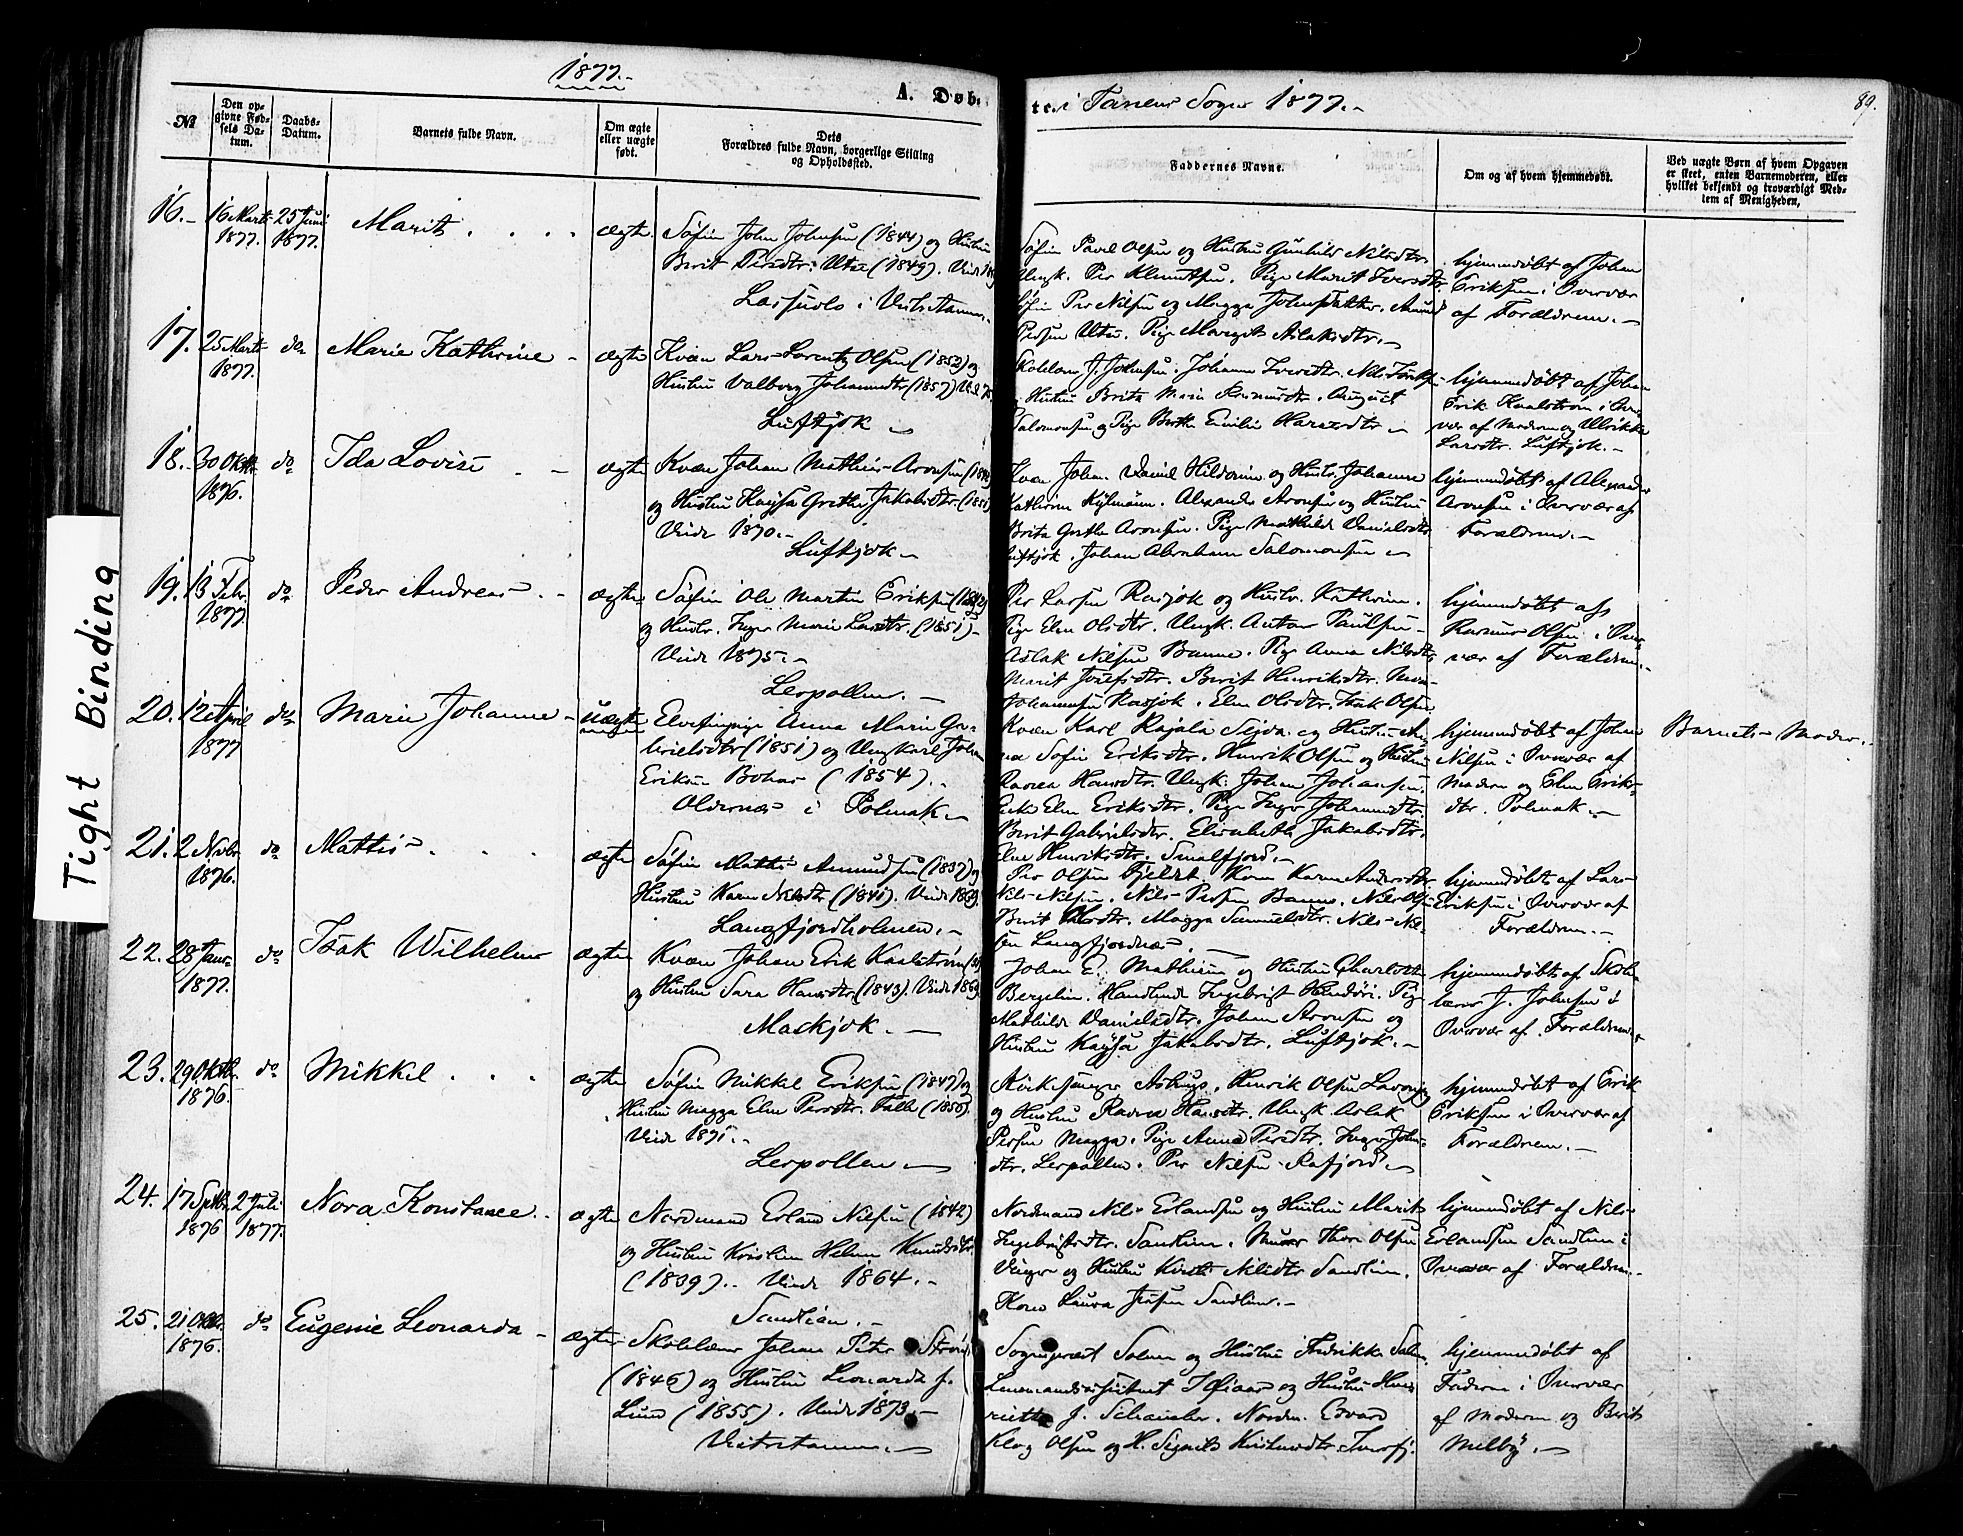 1877.-
A. Døb-
te i Tanens Sogn 1877.-
89.
№
Den op-
givne Fød-
sels Da-
tum.
Daabs-
Datum.
Barnets fulde Navn.
Om ægte
eller uægte
født.
Dets
Forældres fulde Navn, borgerlige Stilling
og Opholdssted.
Faddernes Navne.
Om og af hvem hjemmedøbt.
Ved uægte Børn af hvem Opgaven
er skeet, enten Barnemoderen, eller
hvilket bekjendt og troværdigt Med-
lem af Menigheden.
Tight Binding
16.- 16 Marts 25 Juni Marit . . . . ægte
1877. 1877.
Søfin John Johnsen (1844) og Hustru
Berit Persdtr. Utse (1849).
i Vestertanen.-
Søfin Povel Olsen og Hustru Gunhild Nilsdtr.
Ungk. Per Klemetsen. Pige Marit Iversdtr.
Søfin Per Nilsen og Magga Johnsdatter. Amund
Persen Utse. Pige Margit Aslaksdtr.-
hjemmedøbt af Johan
Eriksen i Overvær
af Forældrene.-
17. 25 Marts do Marie Kathrine - ægte
1877.
Kvæn Lars Lorentz Olsen (1852) og
Hustru Valborg Johannesdtr (1857)
Luftjok -
Johnsen. Johanne Iversdtr.
Hustru Brita Maria Rasmusdtr. August
Salomonsen og Pige Berthe Emilie
hjemmedøbt af Johan
Erik Kaalstrøm i Over-
vær af Moderen og Ulrikke
Larsdtr. Luftjok.-
18. 30 Oktbr. do Ida Lovise . - ægte
1876.
Kvæn Johan Mathis Aronsen
og Hustru Kaysa Grethe Jakobsdtr. (1851)
Viede 1870.-
Luftjok -
Kvæn Johan Daniel og Hustr. Johanne
Kathrine. Alexander Aronsen og Hustru
Brita Grethe Aronsen. Pige Mathilde Danielsdtr.
Luftjok. Johan Abraham Salomonsen -
hjemmedøbt af Alexander
Aronsen i Overvær af
Forældrene.-
19. 13 Febr. do Peder Andreas . - ægte
1877
Søfin Ole Martin Eriksen
og Hustr. Inger Marie Larsdtr. (1851)-
Viede 1875.-
Leepollen.-
Per Larsen Rasjok og Hustr. Kathrine.
Pige Elen Olsdtr. Ungk. Anton Paulsen-
Aslak Nilsen Banne. Pige Anna Nilsdtr.
Marit Josefsdtr. Berit Henriksdtr.
Johannesen Rasjok. Elen Olsdtr. Isak Olsen
hjemmedøbt af
Rasmus Olsen i Over-
vær af Forældrene.-
20. 12 April do Marie Johanne - uægte
1877
Anna Marie Ga-
brielsdtr (1851) og Ungkarl Johan
Eriksen Bohas (1854).-
Oldernæs i Polmak.-
Kvæn Karl Rajala Sejda og Hustru An-
na Sofie Eriksdtr. Henrik Olsen og Hustru
Ravna Hansdtr. Ungk. Johan Johansen.
Enke Elen Eriksdtr. Pige Inger Johannesdtr.
Berit Gabrielsdtr. Elisabeth Jakobsdtr.
Elen Henriksdtr. Smalfjord.-
hjemmedøbt af Johan
Nilsen i Overvær af
Moderen og Elen Eriks-
dtr. Polmak.-
Barnets Moder.-
21. 2 Novbr. do Mattis . . . ægte
1876.
Søfin Mattis Amundsen (1837) og
Hustru Karen Nilsdtr (1841). Viede
Langfjordholmen.-
Per Olsen. Kone Karen Andersdtr.
Nils Nilsen. Nils Persen Banne. Nils Olsen
Berit Olsdtr. Magga Samuelsdtr. Nils Nil-
sen Langfjordnæs.-
hjemmedøbt af Lars
Eriksen i Overvær af
Forældrene.-
22. 28 Janr. do Isak Wilhelm ægte
1877.
Kvæn Johan Erik Kaalstrøm
og Hustru Sara Hansdtr (1843). Viede
Maskjok.-
Johan E. Mathisen og Hustru Charlotte
Bergelin. Handlende Ingebrigt. Pige
Mathilde Danielsdtr. Johan Aronsen og
Hustru Kaysa Jakobsdtr. Luftjok.-
hjemmedøbt af Skole-
lærer J. Johnsen i
Overvær af Forældrene.-
23. 29 Oktbr. do Mikkel . . . ægte
1876.
Søfin Mikkel Eriksen (1847) og
Hustru Magga Elen Persdtr.
Viede 1871.-
Leepollen -
Kirkesanger. Henrik Olsen
og Hustru Ravna Hansdtr. Ungk. Aslak
Persen Magga. Pige Anna Persdtr. Inger Johns-
dtr. Leepollen. Per Nilsen -
hjemmedøbt af Erik
Eriksen i Overvær af
Forældrene.-
24. 17 Septbr. 2 Juli Nora Konstance.- ægte
1876 1877.
Nordmand Erland Nilsen (1842)
og Hustru Kristine Helene Knudsdtr.
(1839).. Viede 1864.-
Sandlien.-
Nordmand Nils Erlandsen og Hustru Marit
Ingebrigtsdtr. Sandlien. Thore Olsen
og Hustru Kirsti Nilsdtr Sandlien.
Kone Laura Jensen Sandlien.-
hjemmedøbt af Nils
Erlandsen Sandlien i
Overvær af Forældrene.-
25. 21 Oktbr. do Eugenie Leonarda - ægte
1876.
Skolelærer Johan Peter Strøm
(1846) og Hustru Leonarda f.
Lund (1855). Viede 1873.-
Vestertanen.-
Sognepræst Solem og Hustru Fredrikke Solem
Lensmandsassistent og Hustru Hen-
riette f. Schanche. Nordm. Edvard
Klog Olsen og H. Signete
hjemmedøbt af
Faderen i Overvær
af Moderen og Berit
Milby.-